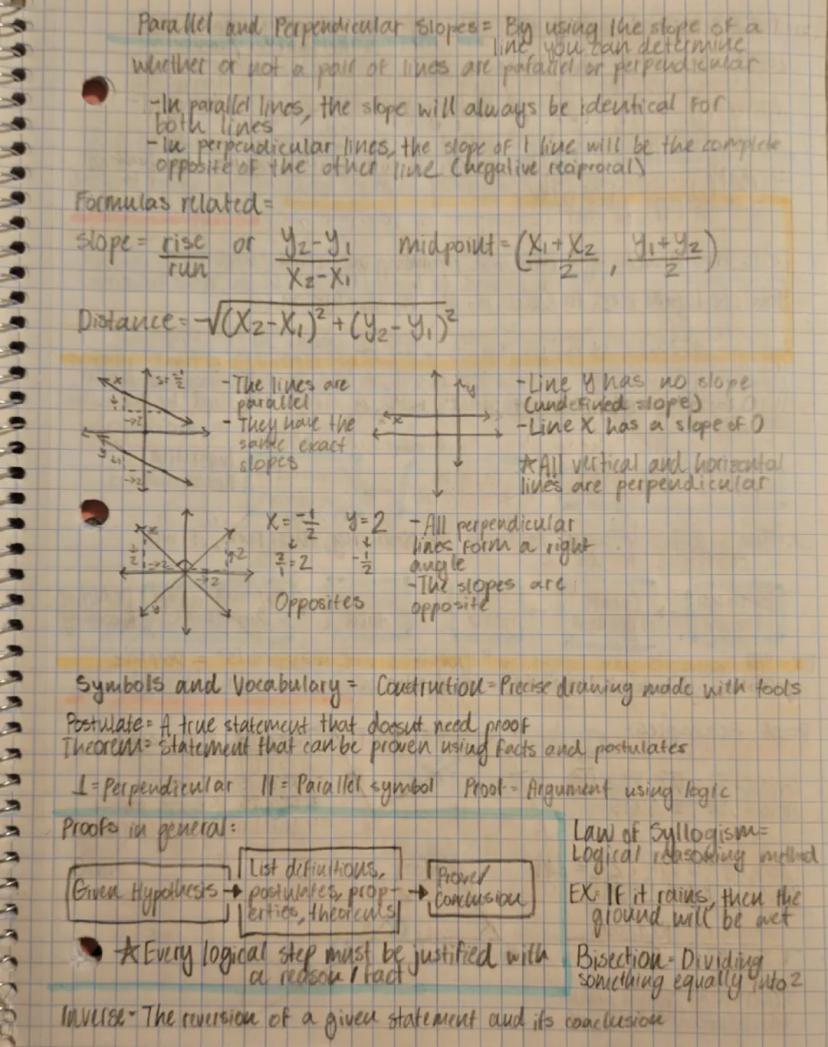 Parallel and Perpendicular Slopes = By using the slope of a
line, you can determine
whether or not a pair of lines are parallel or perpendicular
-In parallel lines, the slope will always be identical for
both lines
-In perpendicular lines, the slope of 1 line will be the complete
opposite of the other line (negative reciprocal)
Formulas related=
Slope = rise/run or y₂-y₁/x₂-x₁ midpoint = (x₁+x₂/2, y₁+y₂/2)
Distance = √(x₂-x₁)²+(y₂-y₁)²
-The lines are
parallel
-They have the
same exact
slopes
x
y
-Line y has no slope
(undefined slope)
-Line x has a slope of 0
☆All vertical and horizontal
lines are perpendicular
x = -1/2 y = 2
↓ ↓
2/1 = 2 -1/2
Opposites
-All perpendicular
lines form a right
angle
-The slopes are
opposite
Symbols and Vocabulary = Construction = Precise drawing made with tools
Postulate = A true statement that doesnt need proof
Theorem = Statement that can be proven using facts and postulates
⊥ = Perpendicular || = Parallel symbol Proof = Argument using logic
Proofs in general:
Given Hypothesis →
List definitions,
postulates, prop-
erties, theorems
→ Prove/
conclusion
☆Every logical step must be justified with
a reason / fact
Law of Syllogism =
Logical reasoning method
EX: If it rains, then the
ground will be wet
Bisection - Dividing
something equally into 2
Inverse - The reversion of a given statement and its conclusion